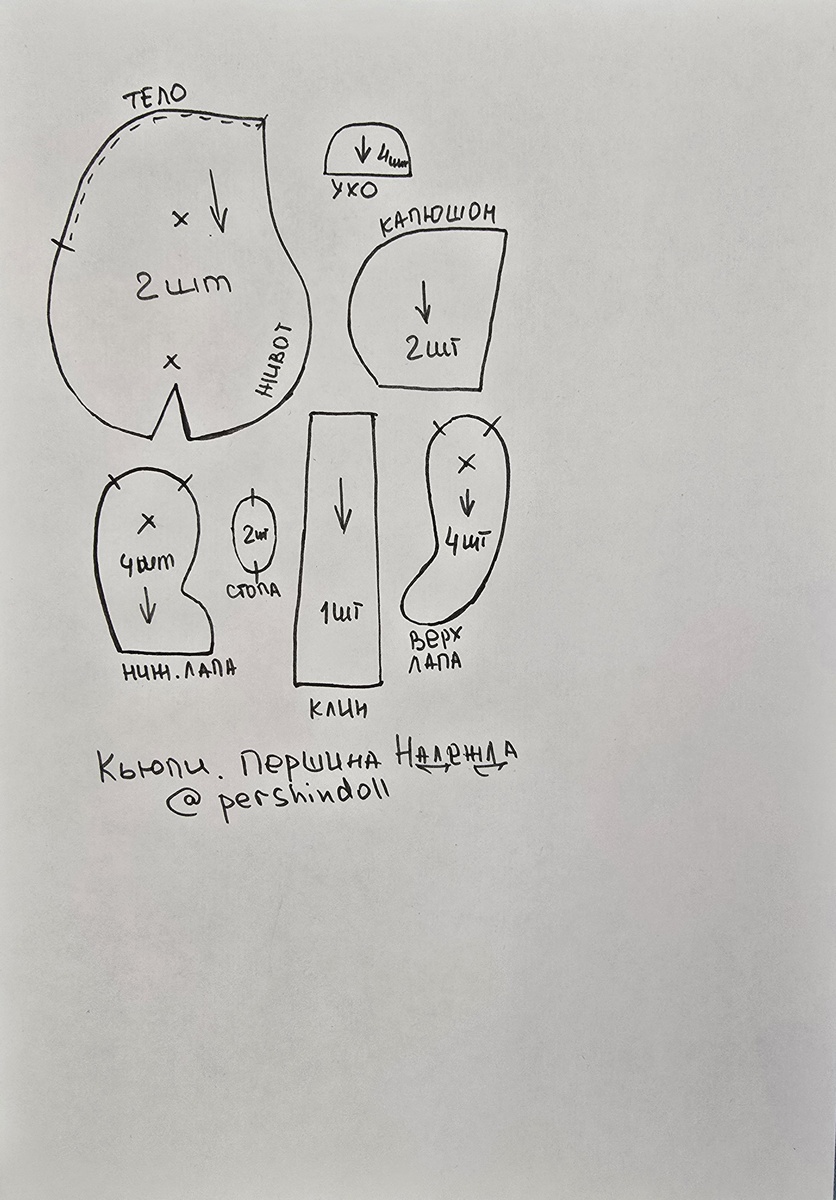 ТЕЛО
2 шт
ЖИВОТ
4шт
УХО
КАПЮШОН
2шт
4шт
НИЖ.ЛАПА
2шт
СТОПА
1шт
КЛИН
4шт
ВЕРХ
ЛАПА
Кьюпи. Першина Надежда
@pershindoll